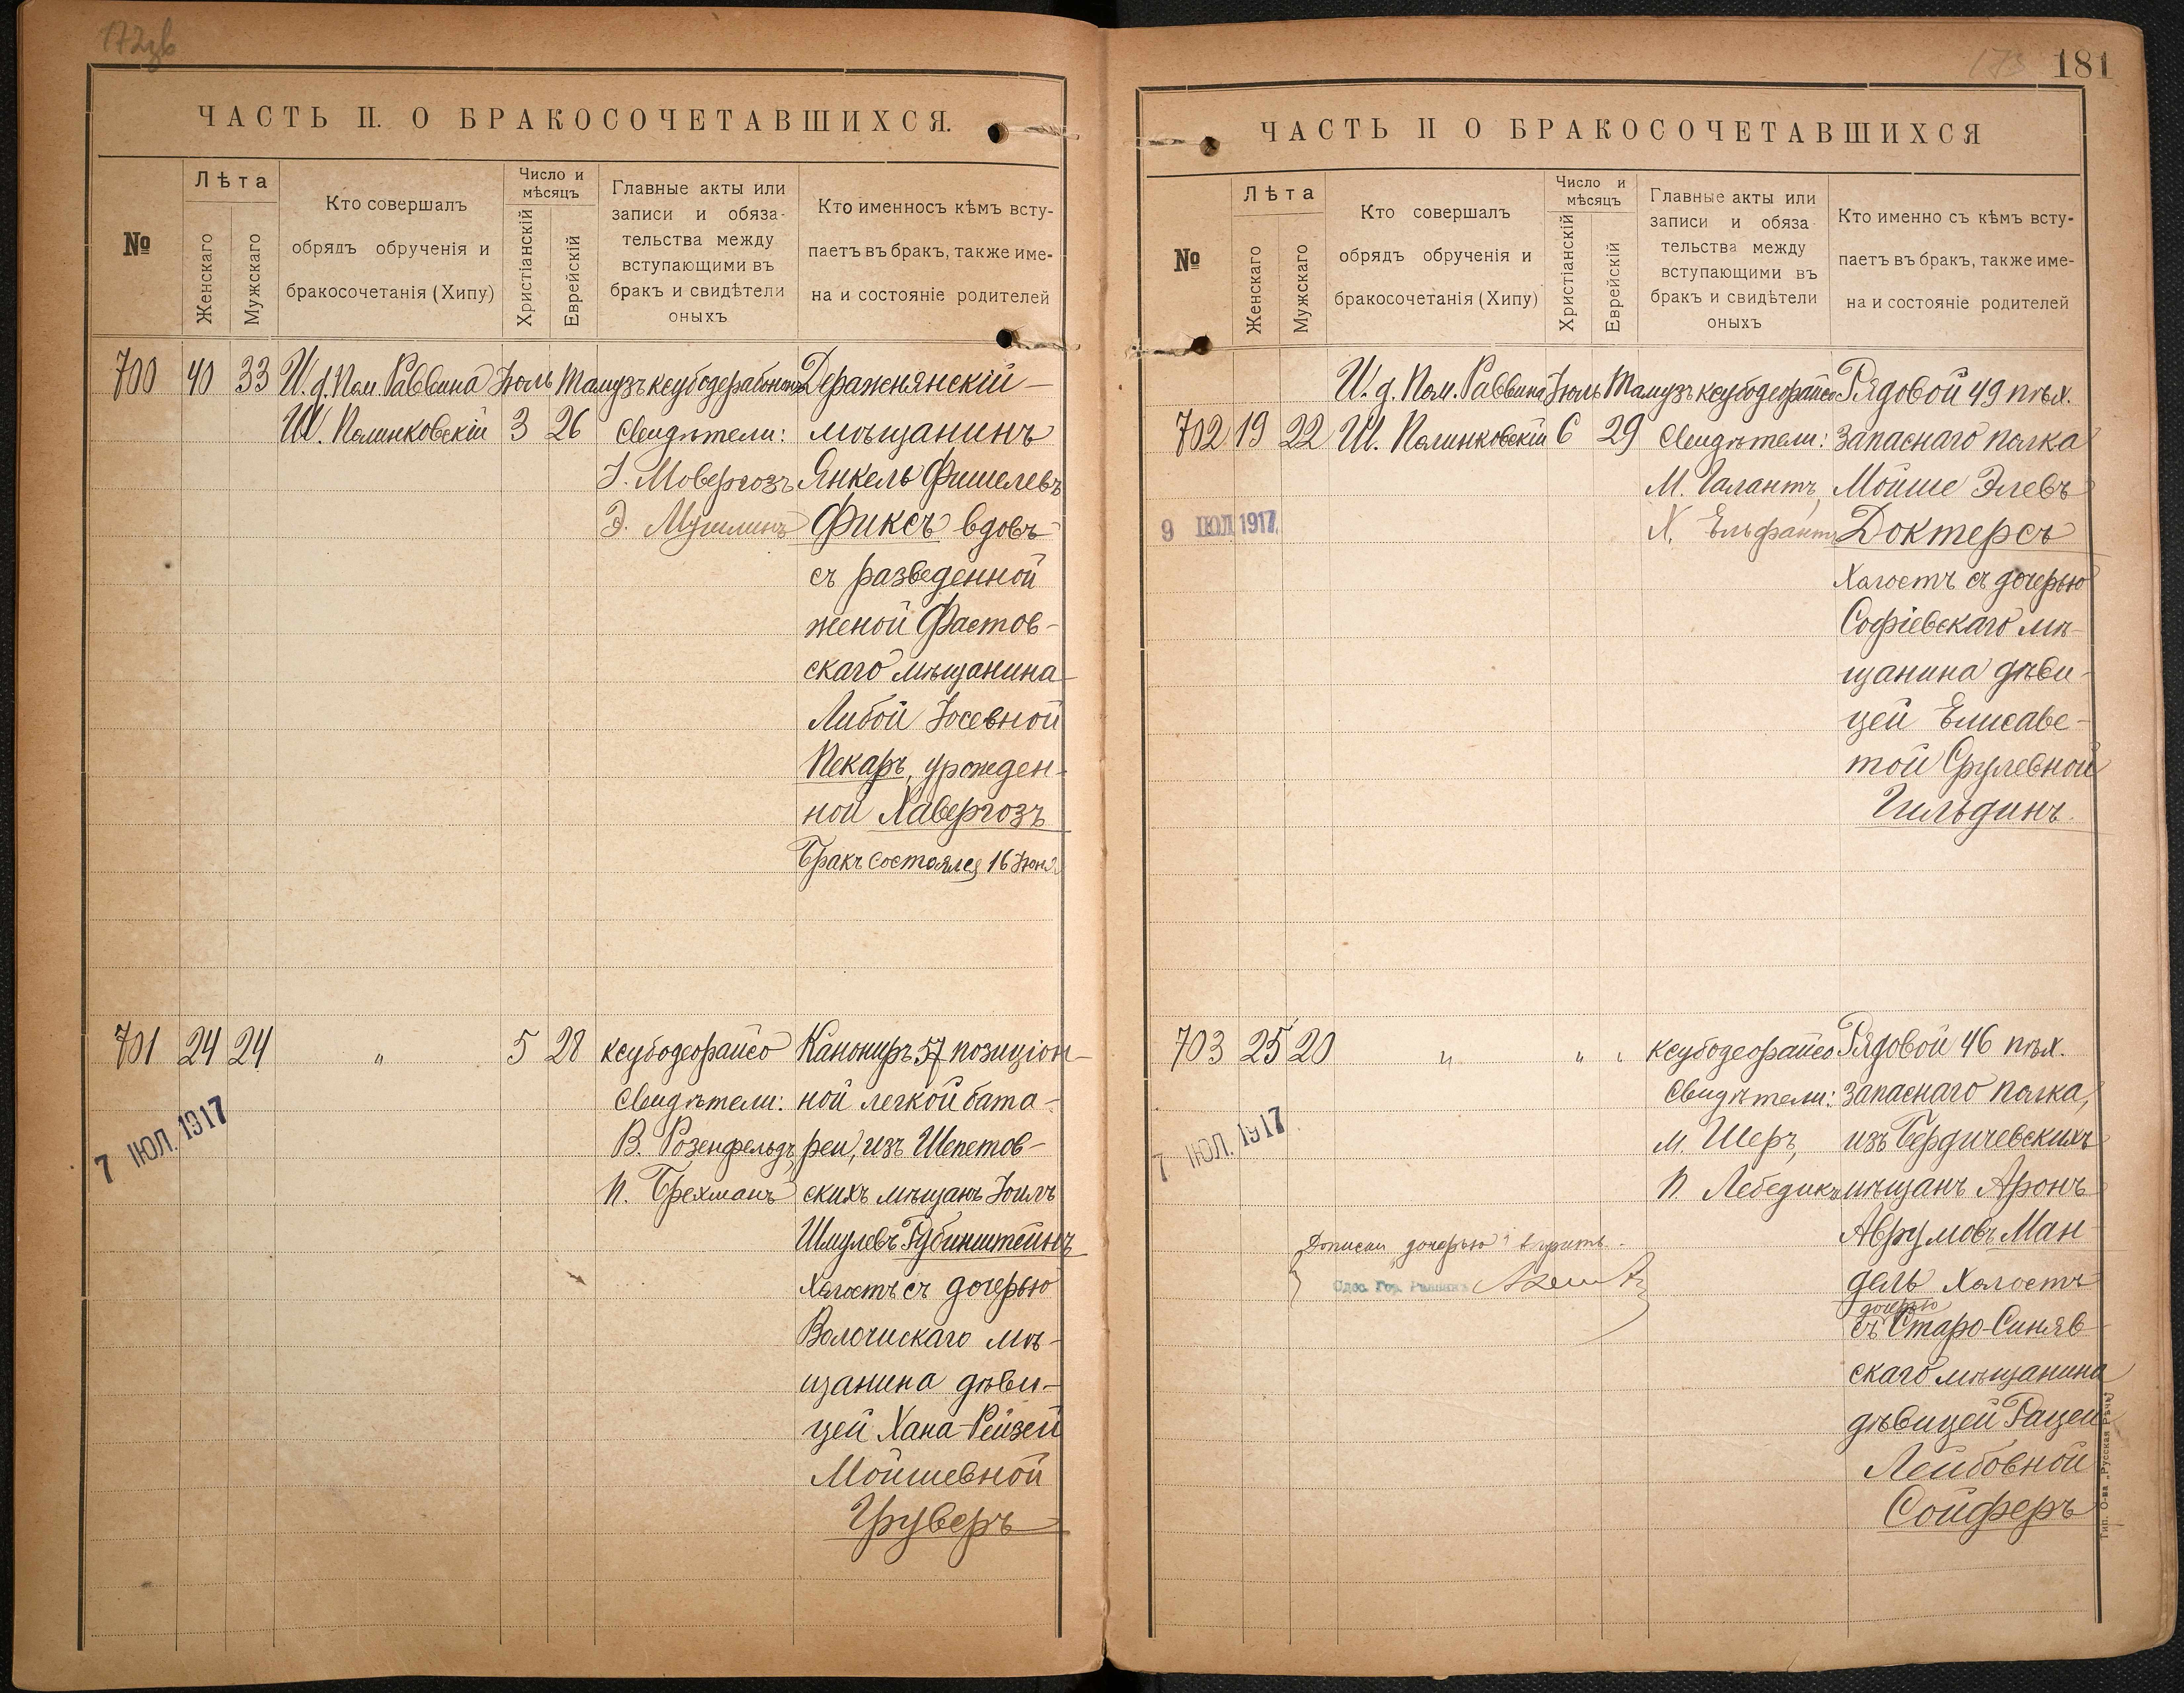 172зв
ЧАСТЬ II. О БРАКОСОЧЕТАВШИХСЯ.
№
Лѣта
Женскаго
Мужскаго
Кто совершалъ
обрядъ обрученія и
бракосочетанія (Хипу)
Число и
мѣсяцъ
Христіанскій
Еврейскій
Главные акты или
записи и обяза-
тельства между
вступающими въ
бракъ и свидѣтели
оныхъ
Кто именносъ кѣмъ всту-
паетъ въ бракъ, также име-
на и состояніе родителей
700 40 33 И. д. Пом. Раввина Іюль Тамузъ
Ш. Полинковскій 3 26
Свидѣтели:
І. Мовергозъ
Э. Мушлинъ
Деражнянскій
мѣщанинъ
Янкель Фишелевъ
Фиксъ вдовъ
съ разведенной
женой Фастов-
скаго мѣщанина
Либой Іосевной
Пекаръ, урожден-
ной Хавергозъ
Бракъ состоялся 16 Іюня
701 24 24 " 5 28
ксубодеорайсо
Свидѣтели:
В. Розенфельдъ,
П. Брехманъ
Канониръ 57 позиціон-
ной легкой бата-
реи, изъ Шепетов-
скихъ мѣщанъ Іоилъ
Шмулевъ Рубинштейнъ
холостъ съ дочерью
Волочискаго мѣ-
щанина дѣви-
цей Хана-Рейзей
Мойшевной
Груверъ
7 ІЮЛ. 1917
173 181
ЧАСТЬ II О БРАКОСОЧЕТАВШИХСЯ
№
Лѣта
Женскаго
Мужскаго
Кто совершалъ
обрядъ обрученія и
бракосочетанія (Хипу)
Число и
мѣсяцъ
Христіанскій
Еврейскій
Главные акты или
записи и обяза
тельства между
вступающими въ
бракъ и свидѣтели
оныхъ
Кто именно съ кѣмъ всту-
паетъ въ бракъ, также име-
на и состояніе родителей
И. д. Пом. Раввина Іюль Тамузъ ксубодеорайсо
702 19 22 Ш. Полинковскій 6 29
Свидѣтели:
М. Галантъ,
Х. Ельфантъ
Рядовой 49 пѣх.
запаснаго полка
Мойше Элевъ
Доктерсъ
холостъ съ дочерью
Софіевскаго мѣ-
щанина дѣви-
цей Елисаве-
той Срулевной
Гильдинъ.
9 ІЮЛ 1917
703 25 20 " " "
ксубодеорайсо
Свидѣтели:
М. Шеръ,
П Лебедикъ
Рядовой 46 пѣх.
запаснаго полка,
изъ Бердичевскихъ
мѣщанъ Аронъ
Аврумовъ Ман
дель холостъ
дочерью
съ Старо-Синяв
скаго мѣщанина
дѣвицей Рацей
Лейбовной
Сойферъ
7 ІЮЛ. 1917
дочерью
Тип. О-ва „Русская Рѣчь“